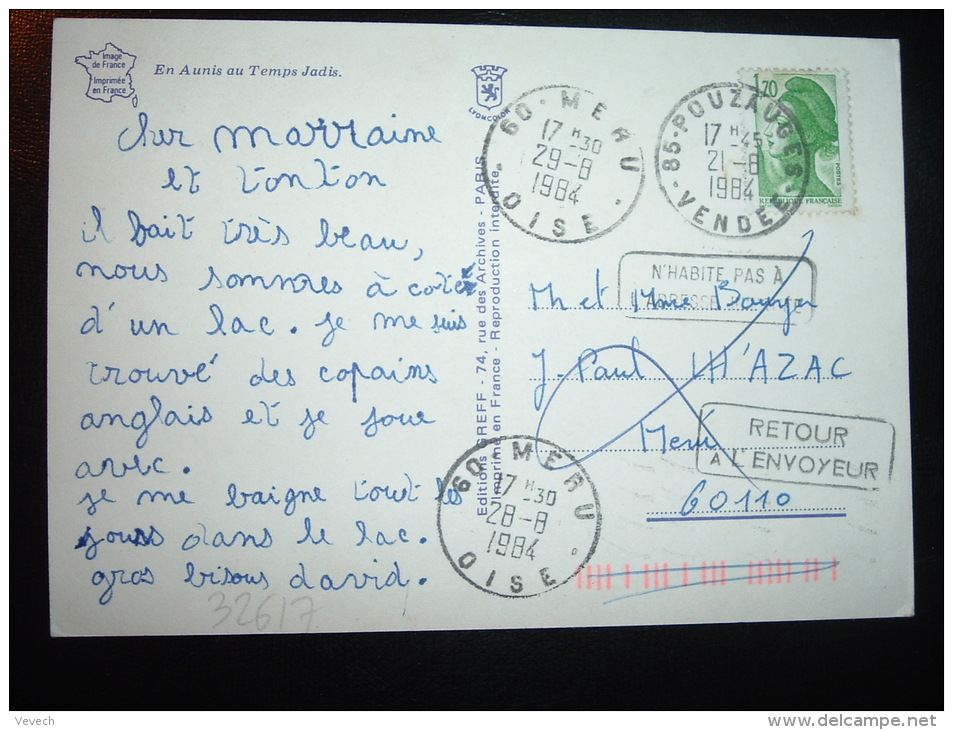 Image
de France
Imprimée
en France
En Aunis au Temps Jadis.
LYONCOLOR
Cher marraine
et tonton
il fait très beau,
nous sommes à coté
d'un lac. je me suis
trouvé des copains
anglais et je joue
avec.
je me baigne tout les
jours dans le lac.
gros bisous david.
32617
Editions GREFF - 74, rue des Archives - PARIS
Imprimé en France - Reproduction interdite.
60 - MERU
17 H -30
29-8
1984
OISE
85 - POUZAUGES
17 H -45
21-8
1984
VENDEE
1,70
POSTES
REPUBLIQUE FRANCAISE
N'HABITE PAS À
L'ADRESSE
Mr et Mme
J. Paul
Meru
60110
RETOUR
A L'ENVOYEUR
60 - MERU
17 H -30
28-8
1984
OISE
Vevech
www.delcampe.net